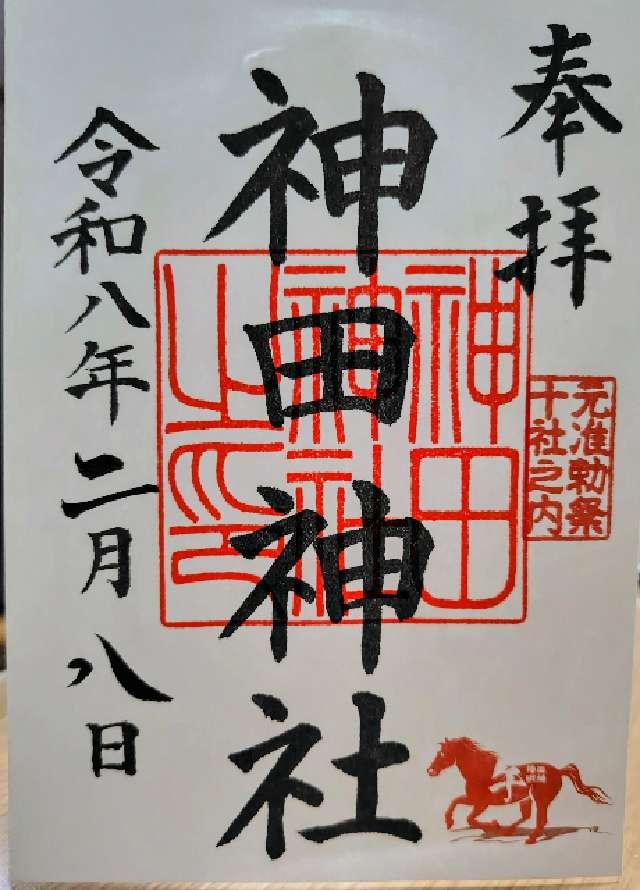 奉拝
元准勅祭
十社之内
神田神社
神田
神社
之印
令和八年二月八日